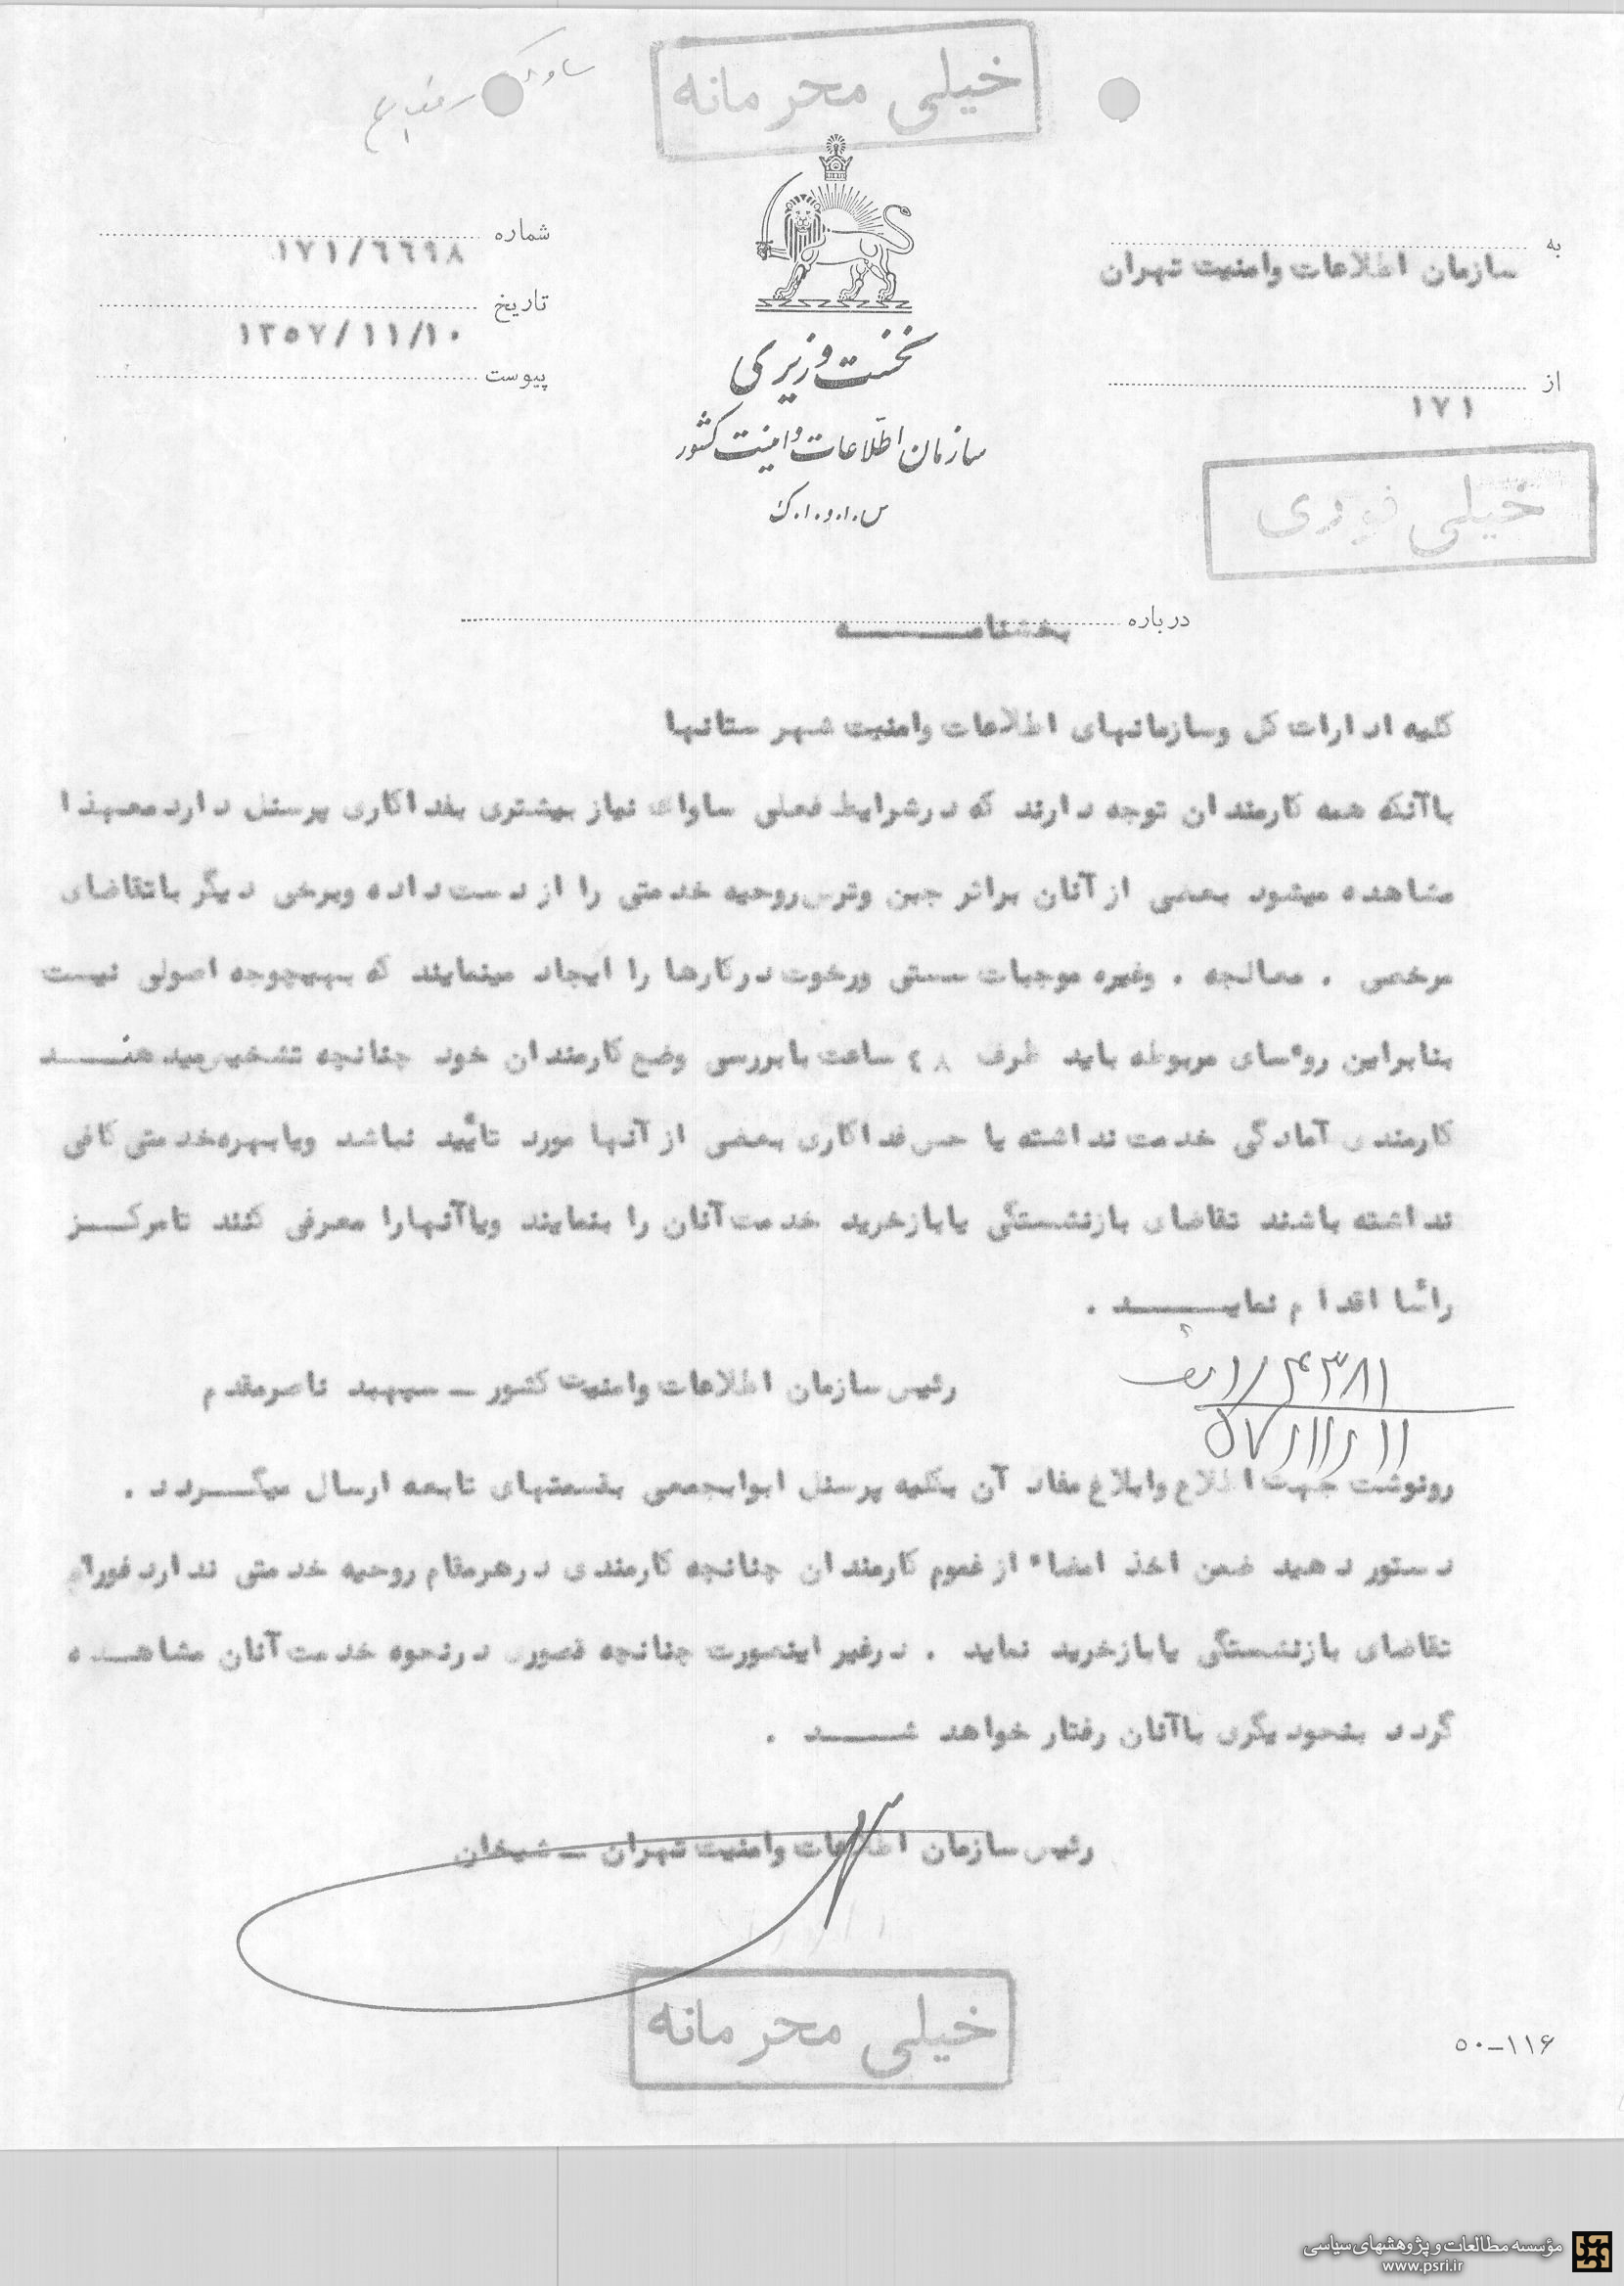 خیلی محرمانه
به
سازمان اطلاعات وامنیت تهران
شماره
۱۷۱/۶۶۹۸
تاریخ
۱۳۵۷/۱۱/۱۰
پیوست
از
۱۷۱
نخست وزیری
سازمان اطلاعات و امنیت کشور
س.ا.و.ا.ک
خیلی فوری
درباره
بخشنامه
کلیه ادارات کل وسازمانهای اطلاعات وامنیت شهرستانها
باآنکه همه کارمندان توجه دارند که درشرایط فعلی ساواک نیاز بیشتری بفداکاری پرسنل دارد معهذا
مشاهده میشود بعضی از آنان براثر جبن وترس روحیه خدمتی را از دست داده وبرخی دیگر باتقاضای
مرخصی . معالجه . وغیره موجبات سستی ورخوت درکارها را ایجاد مینمایند که بهیچوجه اصولی نیست
بنابراین روٴسای مربوطه باید ظرف ۴۸ ساعت بابررسی وضع کارمندان خود چنانچه تشخیص میدهند
کارمندی آمادگی خدمت نداشته یا حس فداکاری بعضی از آنها مورد تأیید نباشد ویابهره خدمتی کافی
نداشته باشند تقاضای بازنشستگی یابازخرید خدمت آنان را بنمایند ویاآنهارا معرفی کنند تامرکز
رأسا اقدام نماید .
رئیس سازمان اطلاعات وامنیت کشور ـ سپهبد ناصرمقدم
۴۳۸۱/الف
۵۷/۱۱/۱۱
رونوشت جهت اطلاع وابلاغ مفاد آن بکلیه پرسنل ابوابجمعی بقسمتهای تابعه ارسال میگردد .
دستور دهید ضمن اخذ امضاء از عموم کارمندان چنانچه کارمندی درهرمقام روحیه خدمتی ندارد فوراً
تقاضای بازنشستگی یابازخرید نماید . درغیر اینصورت چنانچه قصوری درنحوه خدمت آنان مشاهده
گردد بنحودیگری باآنان رفتار خواهد شد .
رئیس سازمان اطلاعات وامنیت تهران ـ شیخان
خیلی محرمانه
۵۰-۱۱۶
مؤسسه مطالعات و پژوهشهای سیاسی
www.psri.ir